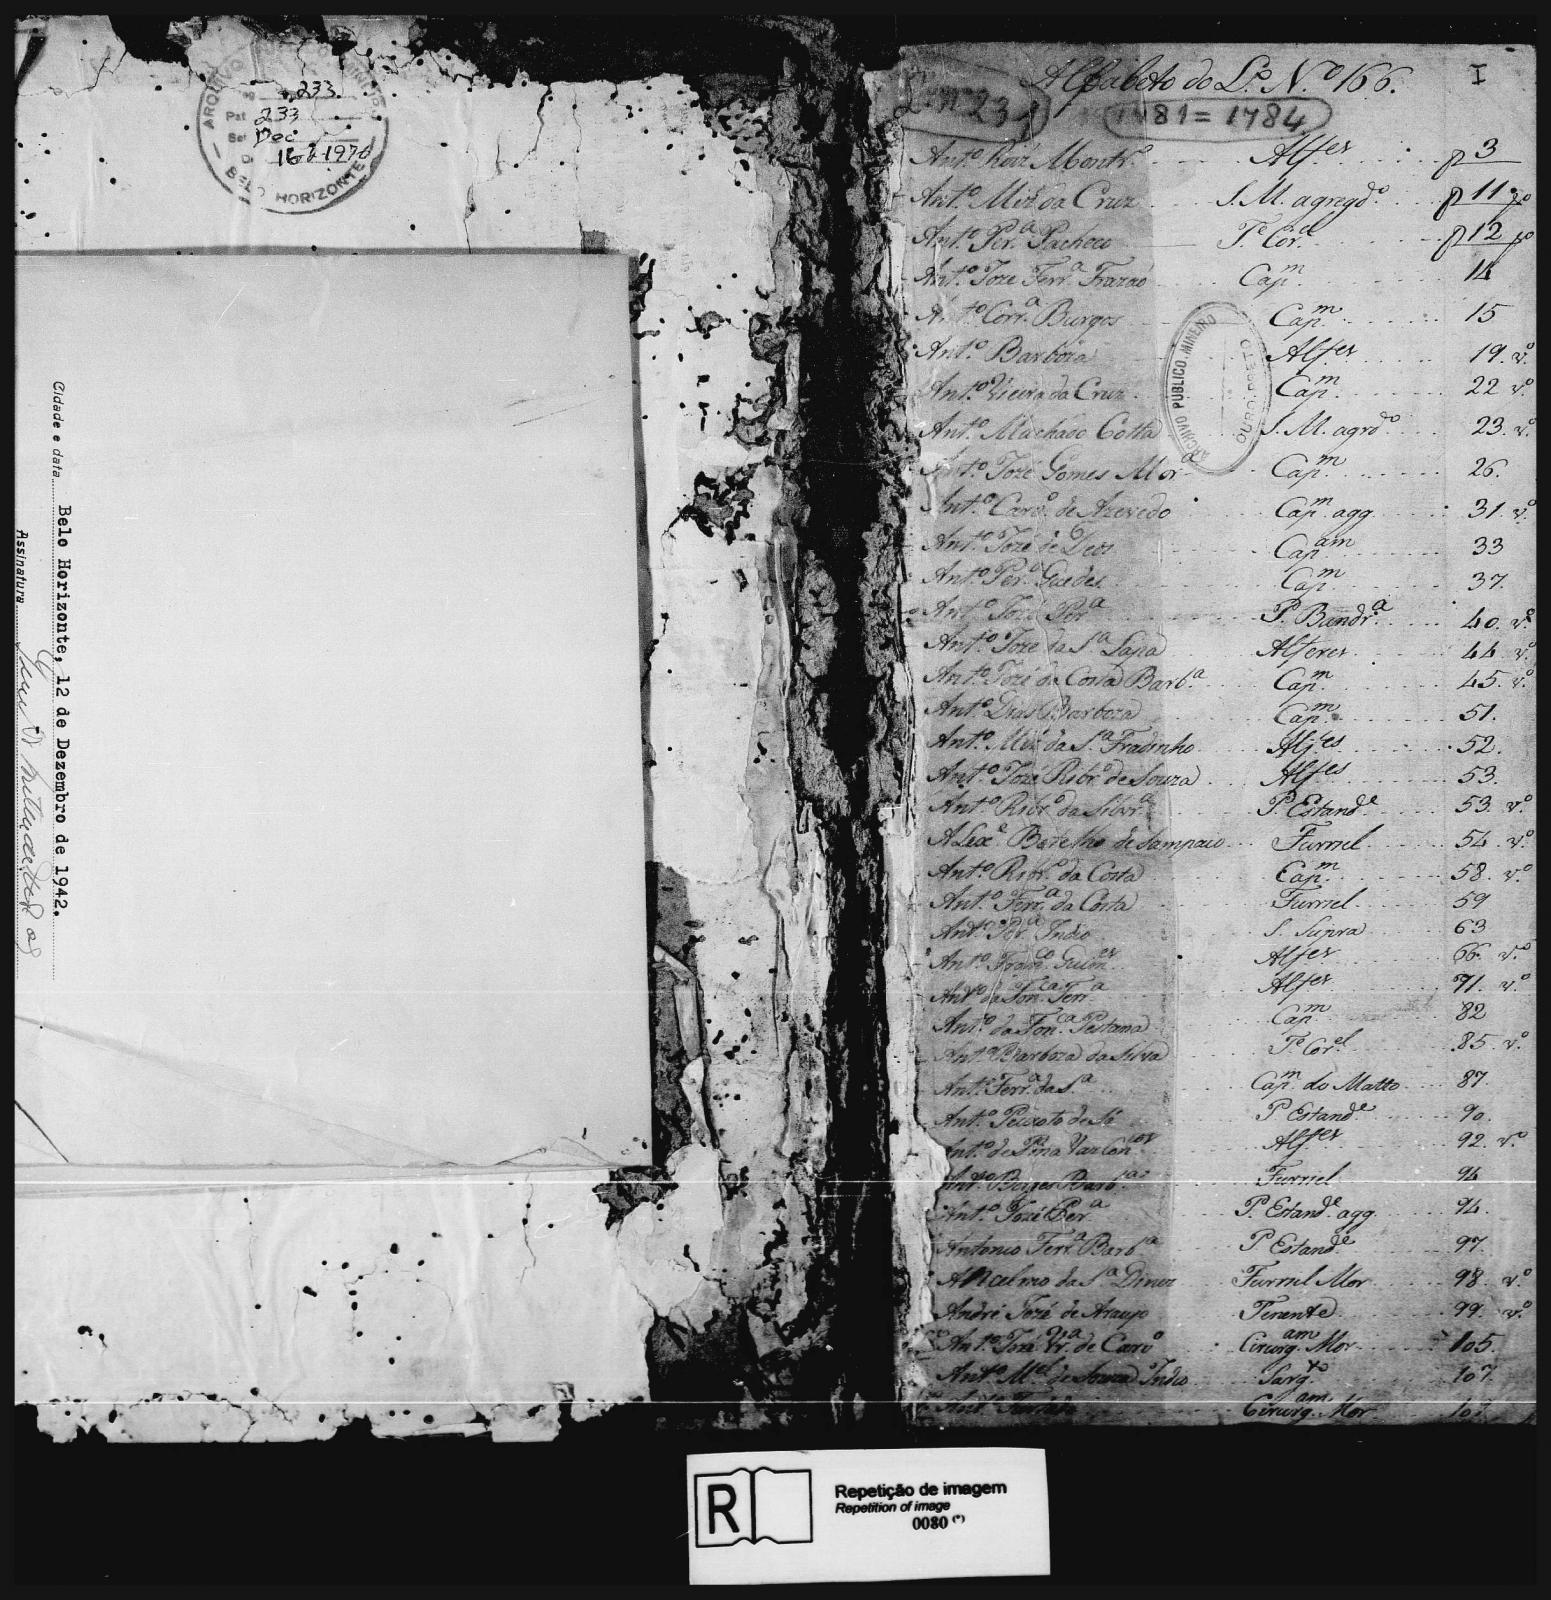 ARQUIVO PUBLICO MINEIRO
233
Pat 233
Set Dec
16-2-1976
BELO HORIZONTE
Cidade e data Belo Horizonte, 12 de Dezembro de 1942.
Assinatura
Alfabeto do L.º N.º 166.
I
L. nº 23
1781 = 1784
Ant.º Roiz Montr.º Alfes p 3
Ant.º Miz da Cruz S. M. agregd.º p 11 vo
Ant.º Per.ª Pacheco T.e Cor.el p 12 vo
Ant.º Joze Ferr.ª Frazaõ Cap.m 14
Ant.º Corr.ª Burgos Cap.m 15
Ant.º Barboza Alfes 19. v.º
Ant.º Vieira da Cruz Cap.m 22 v.º
Ant.º Machado Cotta S. M. agrd.º 23. v.º
Ant.º Jozé Gomes Mor.ª Cap.m 26.
Ant.º Card.º de Azevedo Cap.m agg 31. v.º
Ant.º Jozé de Deos Cap.am 33
Ant.º Per.ª Guedes Cap.m 37.
Ant.º Jozé Per.ª P. Bandr.ª 40. v.º
Ant.º Joze da S.ª Lapa Alferes 44 v.º
Ant.º Jozé da Costa Barb.ª Cap.m 45. v.º
Ant.º Dias Barboza Cap.m 51.
Ant.º Miz da S.ª Fradinho Alfes 52.
Ant.º Jozé Ribr.º de Souza Alfes 53.
Ant.º Ribr.º da Silvr.ª P. Estand.e 53. v.º
Alex.e Botelho de Sampaio Furriel 54 v.º
Ant.º Ribr.º da Costa Cap.m 58. v.º
Ant.º Ferr.ª da Costa Furriel 59
Ant.º Per.ª Indio S. Supra 63
Ant.º Fran.co Guim.es Alfes 66. v.º
Ant.º da Fon.ca Ferr.ª Alfes 71 v.º
Ant.º da Fon.ca Pestana Cap.m 82
Ant.º Barboza da Silva T.e Cor.el 85. v.º
Ant.º Ferr.ª da S.ª Cap.m do Matto 87.
Ant.º Peixoto de Sá P. Estand.e 90.
Ant.º de Pina Vasconc.os Alfes 92. v.º
Ant.º Borges Barb.ª Furriel 94
Ant.º Jozé Per.ª P. Estand.e agg. 94.
Antonio Ferr.ª Barb.ª P Estand.e 97.
Ancelmo da S.ª Diniz Furriel Mor 98. v.º
André Jozé de Araujo Tenente 99. v.º
Ant.º Joze Vr.ª de Carv.º Cirurg.am Mor 105.
Ant.º M.el de Souza Indio Sarg.to 107
Cirurg.am Mor
ARCHIVO PUBLICO MINEIRO
OURO PRETO
R
Repetição de imagem
Repetition of image
0080 (*)